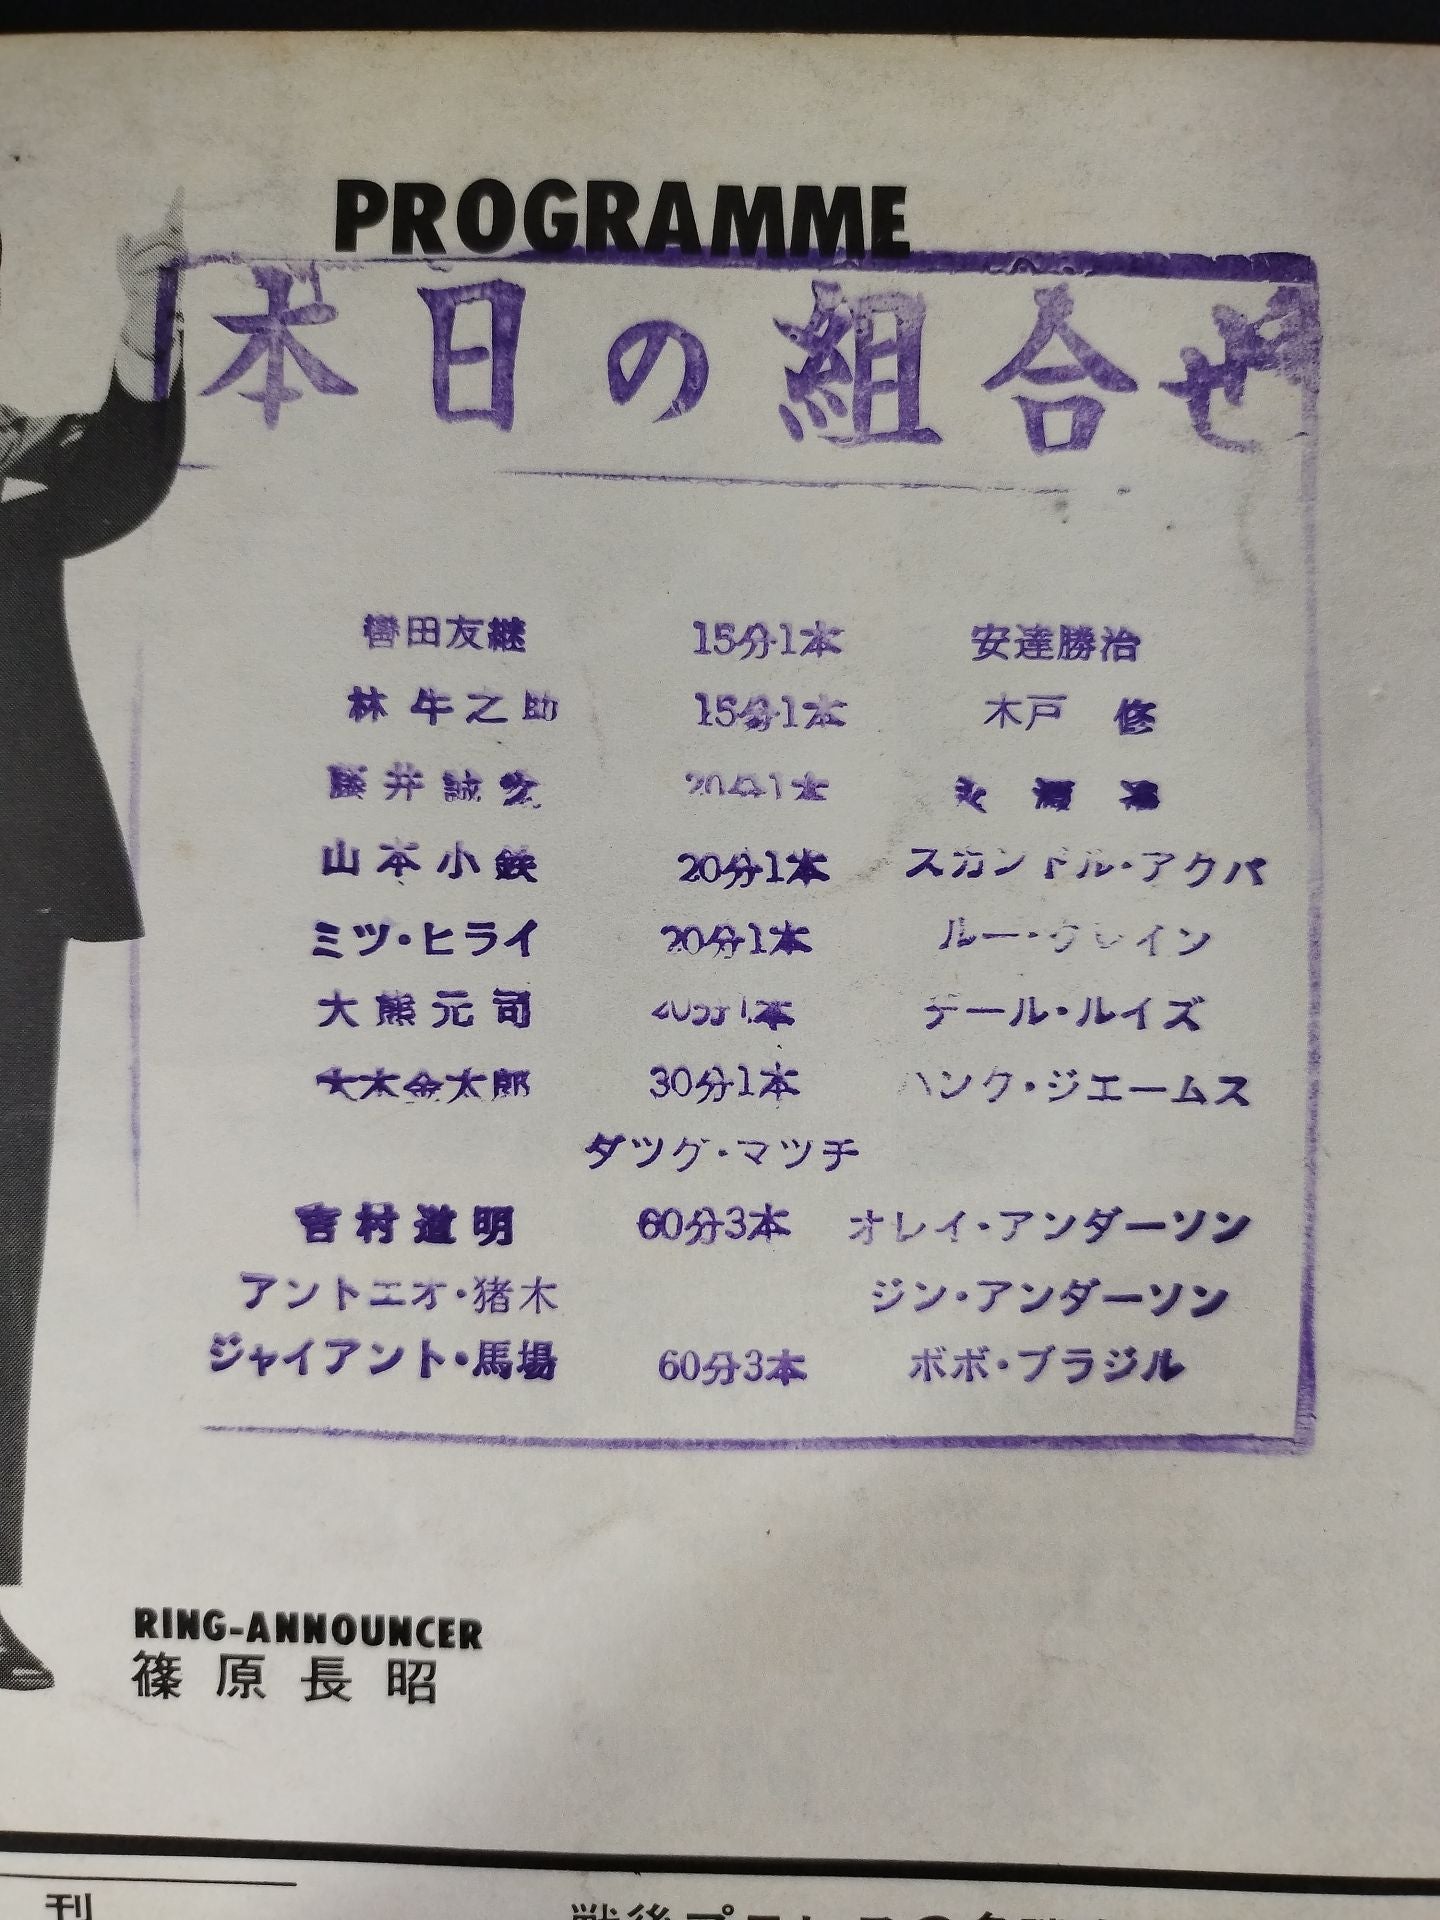 PROGRAMME
本日の組合せ
轡田友継 15分1本 安達勝治
林牛之助 15分1本 木戸 修
藤井誠之 20分1本
山本小鉄 20分1本 スカンドル・アクバ
ミツ・ヒライ 20分1本 ルー・クレイン
大熊元司 20分1本 デール・ルイズ
大木金太郎 30分1本 ハンク・ジエームス
タツグ・マツチ
吉村道明 60分3本 オレイ・アンダーソン
アントニオ・猪木 ジン・アンダーソン
ジャイアント・馬場 60分3本 ボボ・ブラジル
RING-ANNOUNCER
篠原長昭
刊